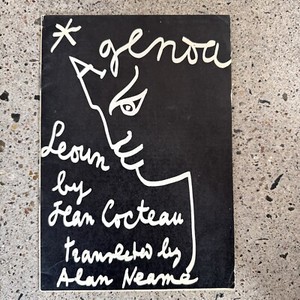 * genda
Leoun
by
Jean Cocteau
translated by
Alan Neame